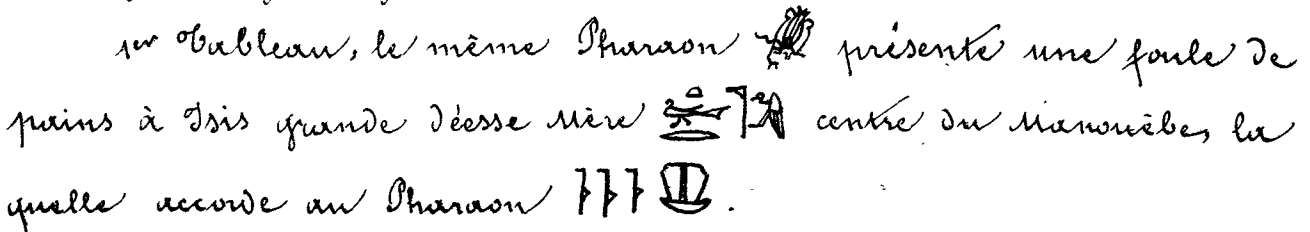 1er Tableau, le même Pharaon présente une foule de
pains à Isis grande déesse Mère centre du Manouèbe, la
quelle accorde au Pharaon .